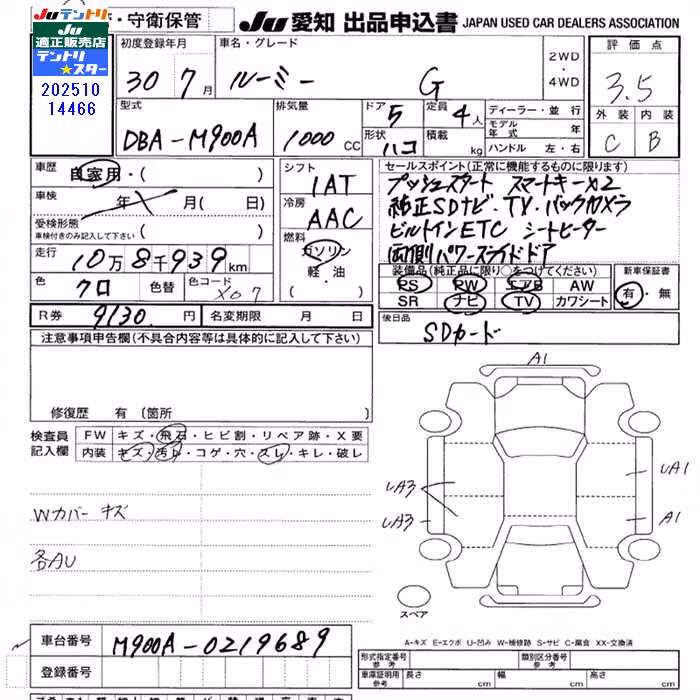 Juテントリ
適正販売店
テントリ
★スター
202510
14466
・守衛保管
Ju 愛知 出品申込書 JAPAN USED CAR DEALERS ASSOCIATION
初度登録年月 車名・グレード 2WD・4WD 評価点
30 7月 ルーミー G 3.5
型式 排気量 ドア 5 定員 4人 ディーラー・並行 外装 内装
DBA-M900A 1000cc 形状 ハコ 積載 kg モデル年式 年 ハンドル 左・右 C B
車歴 自家用・( )
車検 年 月( 日)
受検形態 車検付きのみ記入して下さい ( )
走行 10万8千939km
色 クロ 色替 色コード X07
シフト 1AT
冷房 AAC
燃料 ガソリン 軽・油 ・( )
セールスポイント(正常に機能するものに限ります)
プッシュスタート スマートキー×2
純正SDナビ・TV・バックカメラ
ビルトインETC シートヒーター
両側パワースライドドア
装備品(純正品に限り○をつけてください) 新車保証書
PS PW エアB AW 有・無
SR ナビ TV カワシート
R券 9130円 名変期限 月 日
後日品 SDカード
注意事項申告欄(不具合内容等は具体的に記入して下さい)
修復歴 有(箇所
検査員記入欄 FW キズ・飛石・ヒビ割・リペア跡・X要
内装 キズ・汚れ・コゲ・穴・スレ・キレ・破レ
Wカバー キズ
各AU
A1
UA3
UA3
UA1
A1
スペア
A-キズ E-エクボ U-凹み W-補修跡 S-サビ C-腐食 XX-交換済
車台番号 M900A-0219689
登録番号
形式指定番号 参考 類別区分番号 参考
車庫証明用 参考 長さ cm 幅 cm 高さ cm